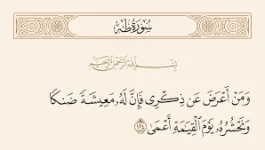 سُورَةُ طه
بِسْمِ اللَّهِ الرَّحْمَٰنِ الرَّحِيمِ
وَمَنْ أَعْرَضَ عَن ذِكْرِى فَإِنَّ لَهُۥ مَعِيشَةً ضَنكًا
وَنَحْشُرُهُۥ يَوْمَ ٱلْقِيَٰمَةِ أَعْمَىٰ ١٢٤